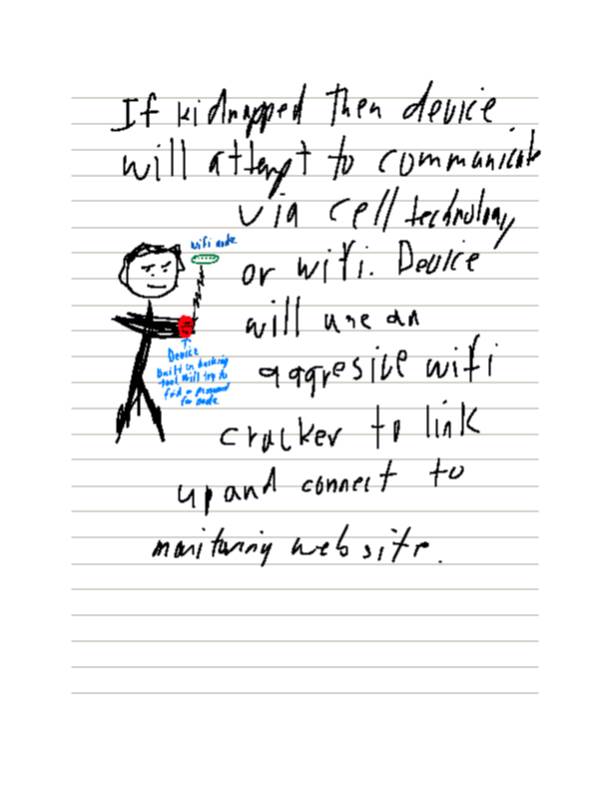 If kidnapped then device
will attempt to communicate
via cell technology
wifi node
or wifi. Device
will use an
Device
Built in hacking
tool will try to
find a password
for node
aggresive wifi
cracker to link
up and connect to
monitoring web site.